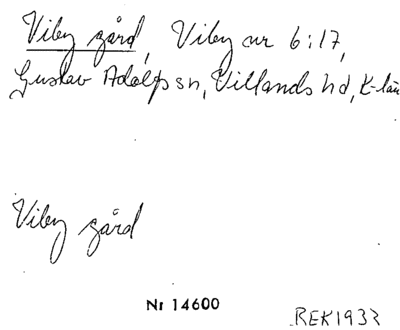 Viby gård, Viby nr 6:17,
Gustav Adolfs sn, Villands hd, K-län
Viby gård
Nr 14600
REK1932